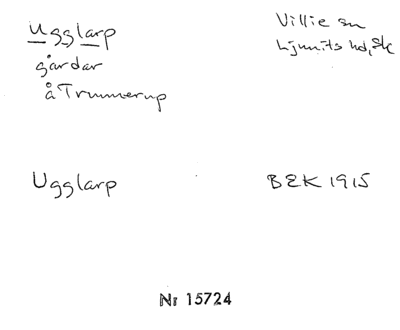 Ugglarp
Villie sn
Ljunits hd, Sk
gårdar
å Trunnerup
Ugglarp
BEK 1915
Nr 15724